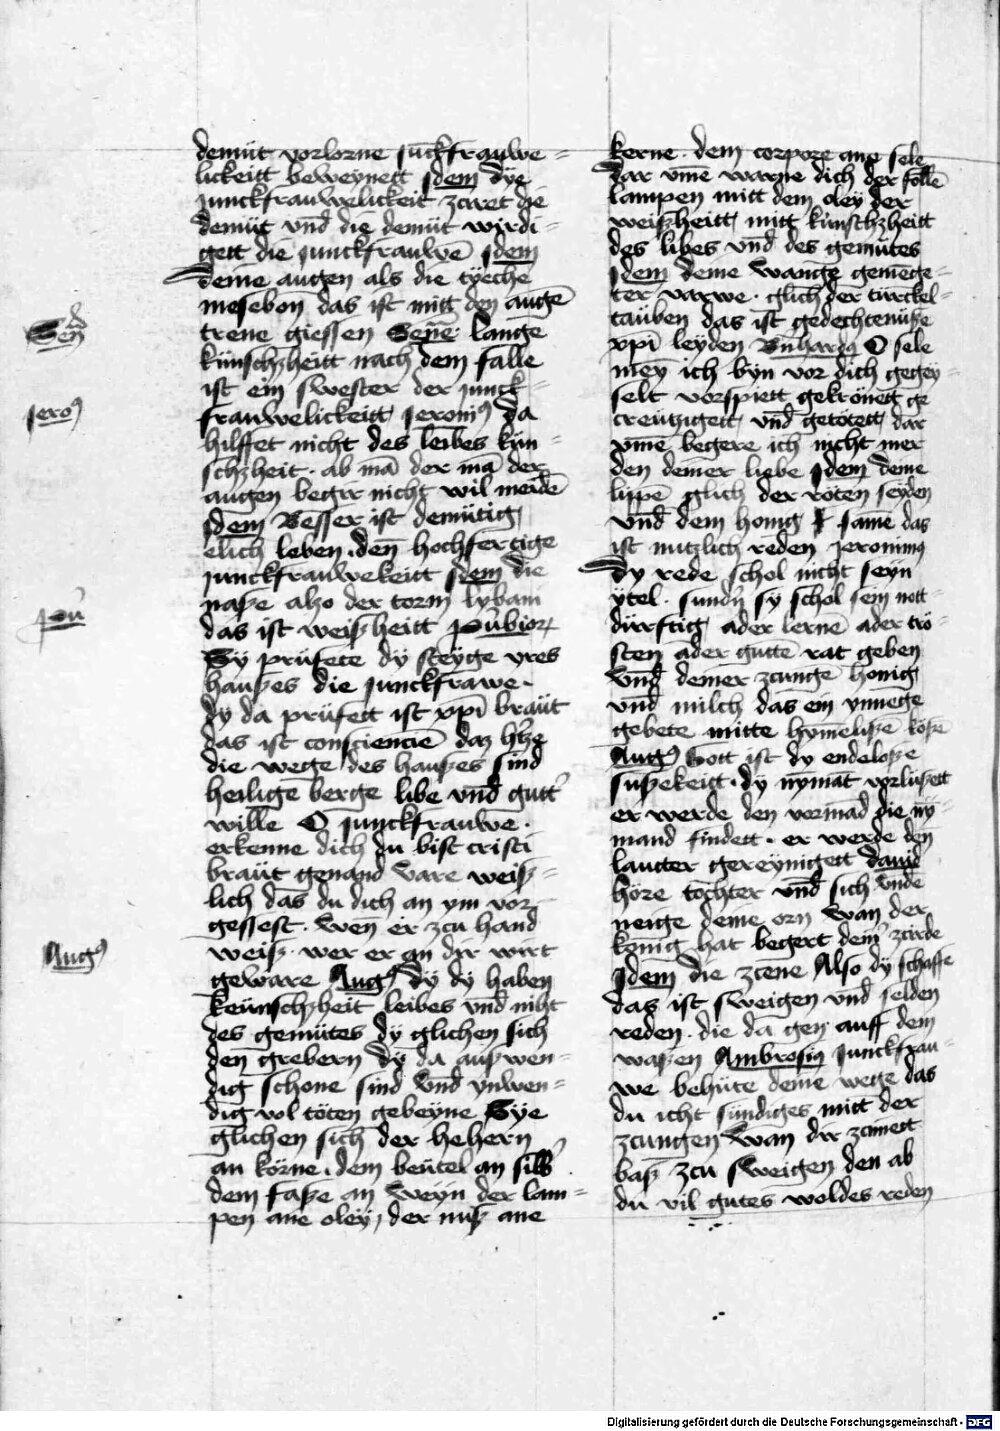 demüt vorlorne juckfrauwe=
lickeitt beweynett Jdem dÿe
junckfrauwelickeit zciret die
demüt vnd die demüt wirdi=
gett die junckfrauwē Jdem
deine augen als die tÿeche
mesebon das ist mitt den augē
trene giessen Sene lange
künschzheitt nach dem falle
ist ein swester der junck=
frauwelickeitt jeronīꝰ da
hilffet nicht des leibes kün=
schzheit · ab mā der mā der
augen begir nicht wil meidē
Jdem Besser ist demütig
elich leben · den hochfertige
junckfrauwekeitt Jdem die
nasze alzo der torm lybani
das ist weiszheitt
Sÿ prüfete dÿ steyge vres
hauszes die junckfrawe ·
dy da prüfett ist xpī braüt
das ist conscienciē daz
die wege des hauszes sind
heiligē berge libe vnd gutt'
wille O junckfrauwe ·
erkenne dich du bist cristi
braüt genand vare weisz=
lich das du dich an ym vor
gessest · wen er zcu hand
weisz · wer er an dir wirt
geware Augꝰ dÿ dÿ haben
keünschzheit leibes vnd niht
des gemütes dÿ glichen sich
den grebern dÿ da auszwen=
dig schone sind vnd ynwen=
dig vol töten gebeÿne Sÿe
glichen sich der hehern
an körne · dem beütel an silb'
dem fasze an weÿn der lam=
pen ane oleÿ, der nusz ane
Sen
jeroꝰ
Augꝰ
kerne · dem corpore ane sele
dar vmē warne dich der follē
lampen mitt dem oley der
weiszheitt, mitt künschzheitt
des libes vnd des gemütes
Jdem deine wange gemege=
ter varwe · glich der türckel=
tauben das ist gedechtenüsze
xpī leÿden Bnhardꝰ O sele
meÿ ich bÿn vor dich gegey=
selt vorspiett gekrönett ge
creützigett, vnd getötett, dar
vmē begere ich nicht mer
den deiner liebe Jdem deine
lippē glich der röten seÿden
vnd dem honig samē das
ist nutzlich reden jeronimꝰ
dy rede schol nicht seyn
ÿtel · sundn sy schol sein nott=
dürftig, ader lernē ader trö=
sten ader guttē rat geben
vnd deiner zcungē honig
vnd milch das ein ynnege
gebete mitte
Augꝰ Gott ist dy endelosze
suszekeitt · dÿ nymat vorluszett
er werde den vormad die ny=
mand findett · er werde den
lautter gereÿnigett dauid
höre tochter vnd sich vnde
neige deine orn wan der
konig hat begert dein' zcirde
Jdem die zcene Also dÿ schaffe
das ist sweigen vnd selden
reden · die da gen auff dem
waszen Ambrosiꝰ junckfrau=
we behüte deine wege das
du icht sündiges mitt der
zcungen wan dir zcimett
basz zcu sweigen den ab
du vil gutes woldes reden